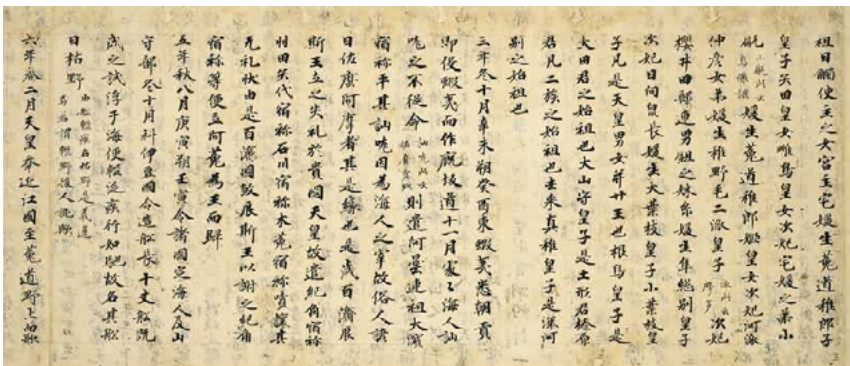 祖日觸使主之女宮主宅媛生菟道稚郎子
皇子矢田皇女雌鳥皇女次妃宅媛之弟小
甂媛生菟道稚郎姬皇女次妃河派
仲彥女弟媛生稚野毛二派皇子次妃
櫻井田部連男鉏之妹糸媛生隼總別皇子
次妃日向泉長媛生大葉枝皇子小葉枝皇
子凡是天皇男女并廿王也根鳥皇子是
大田君之始祖也大山守皇子是土形君榛原
君凡二族之始祖也去來真稚皇子是深河
別之始祖也
三年冬十月辛未朔癸酉東蝦夷悉朝貢
即役蝦夷而作廐坂道十一月處々海人訕
哤之不從命訕哤此云佐麼賣玖則遣阿曇連祖大濱
宿祢平其訕哤因為海人之宰故俗人諺
曰佐麼阿摩者其是緣也是歲百濟辰
斯王立之失礼於貴國天皇故遣紀角宿祢
羽田矢代宿祢石川宿祢木菟宿祢嘖讓其
无礼狀由是百濟國殺辰斯王以謝之紀角
宿祢等便立阿花為王而歸
五年秋八月庚寅朔壬寅令諸國定海人及山
守部冬十月科伊豆國令造船長十丈船既
成之試浮于海便輕泛疾行如馳故名其船
曰枯野由船輕疾名枯野是義違焉若謂輕野後人訛歟
六年春二月天皇幸近江國至菟道野上而歌